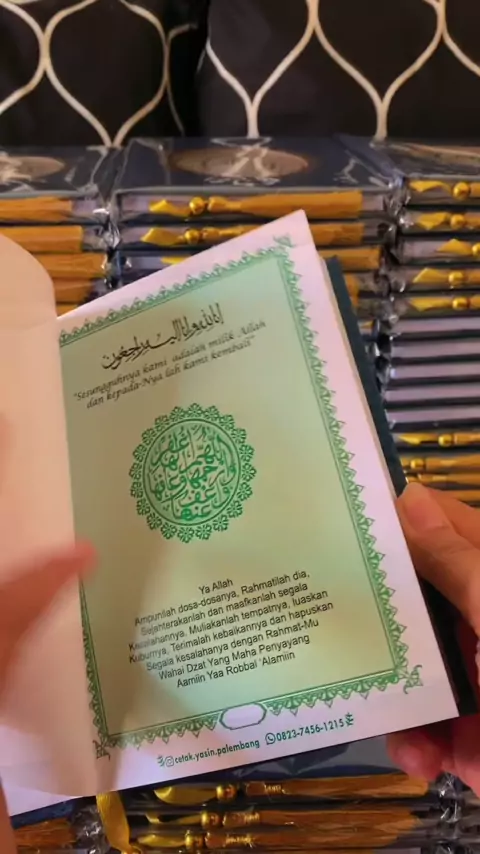 إنا لله وإنا إليه راجعون
"Sesungguhnya kami adalah milik Allah
dan kepada-Nya lah kami kembali"
اللهم اغفر لها وارحمها وعافها واعف عنها
Ya Allah
Ampunilah dosa-dosanya, Rahmatilah dia,
Sejahterakanlah dan maafkanlah segala
Kesalahannya. Muliakanlah tempatnya, luaskan
Kuburnya, Terimalah kebaikannya dan hapuskan
Segala kesalahanya dengan Rahmat-Mu
Wahai Dzat Yang Maha Penyayang
Aamiin Yaa Robbal 'Alamiin
cetak.yasin.palembang 0823-7456-1215